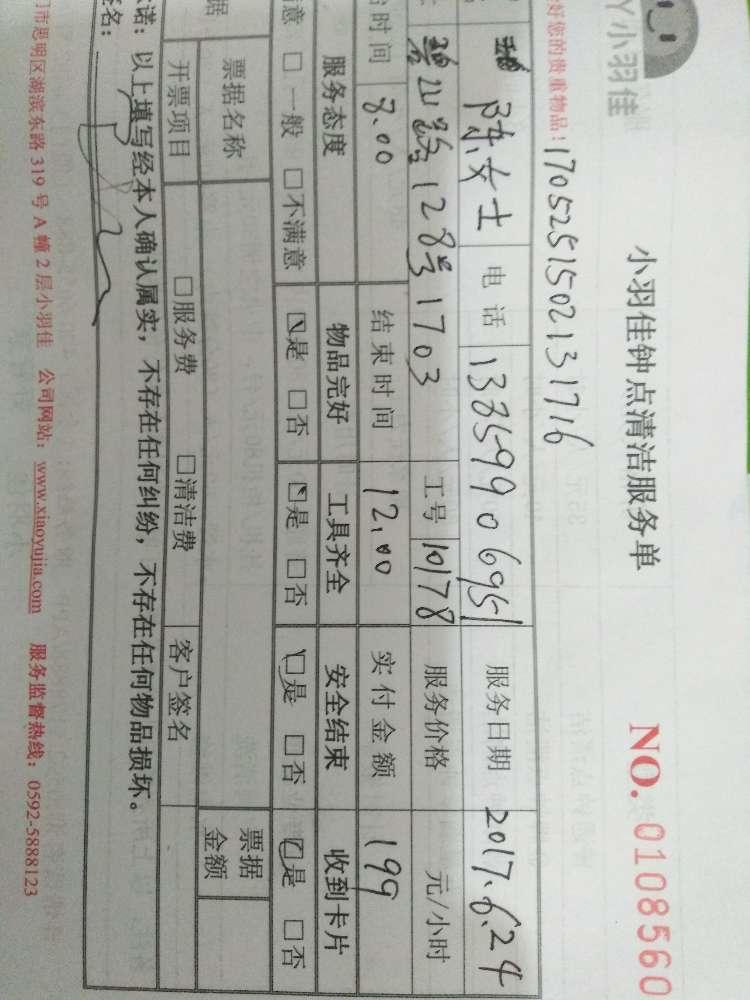 丫小羽佳
小羽佳钟点清洁服务单
NO.0108560
好您的贵重物品!
1705251502131716
陈女士 电话 13859906951 服务日期 2017.6.24
路128号1703 工号 10178 服务价格 元/小时
时间 8.00 结束时间 12.00 实付金额 199
服务态度 物品完好 工具齐全 安全结束 收到卡片
意 □一般 □不满意 ☑是 □否 ☑是 □否 ☑是 □否 ☑是 □否
据 票据名称 票据金额
开票项目 □服务费 □清洁费 客户签名
诺:以上填写经本人确认属实,不存在任何纠纷,不存在任何物品损坏。
签名:
门市思明区湖滨东路 319 号 A 幢 2 层小羽佳 公司网站:www.xiaoyujia.com 服务监督热线:0592-5888123